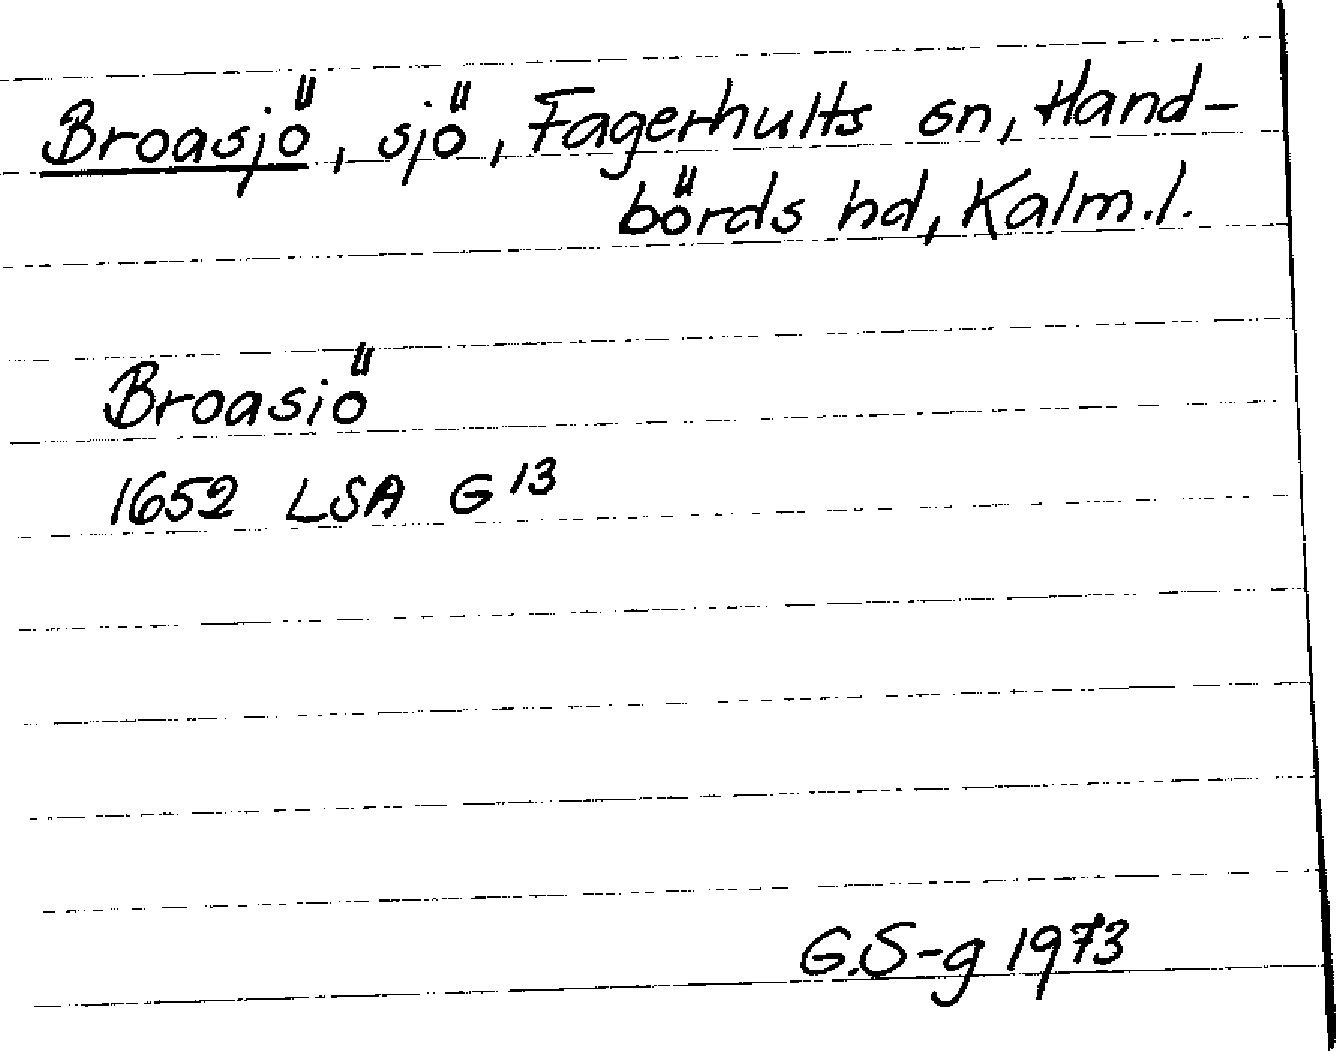 Broasjö, sjö, Fagerhults sn, Hand-
börds hd, Kalm.l.
Broasiö
1652 LSA G 13
G.S-g 1973